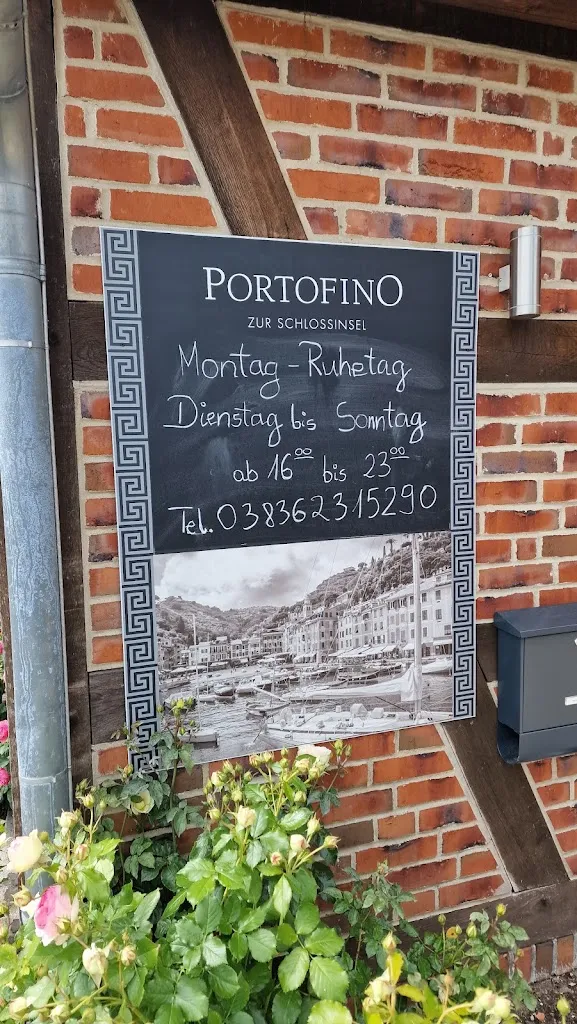 PORTOFINO
ZUR SCHLOSSINSEL
Montag - Ruhetag
Dienstag bis Sonntag
ab 16⁰⁰ bis 23⁰⁰
Tel. 038362315290